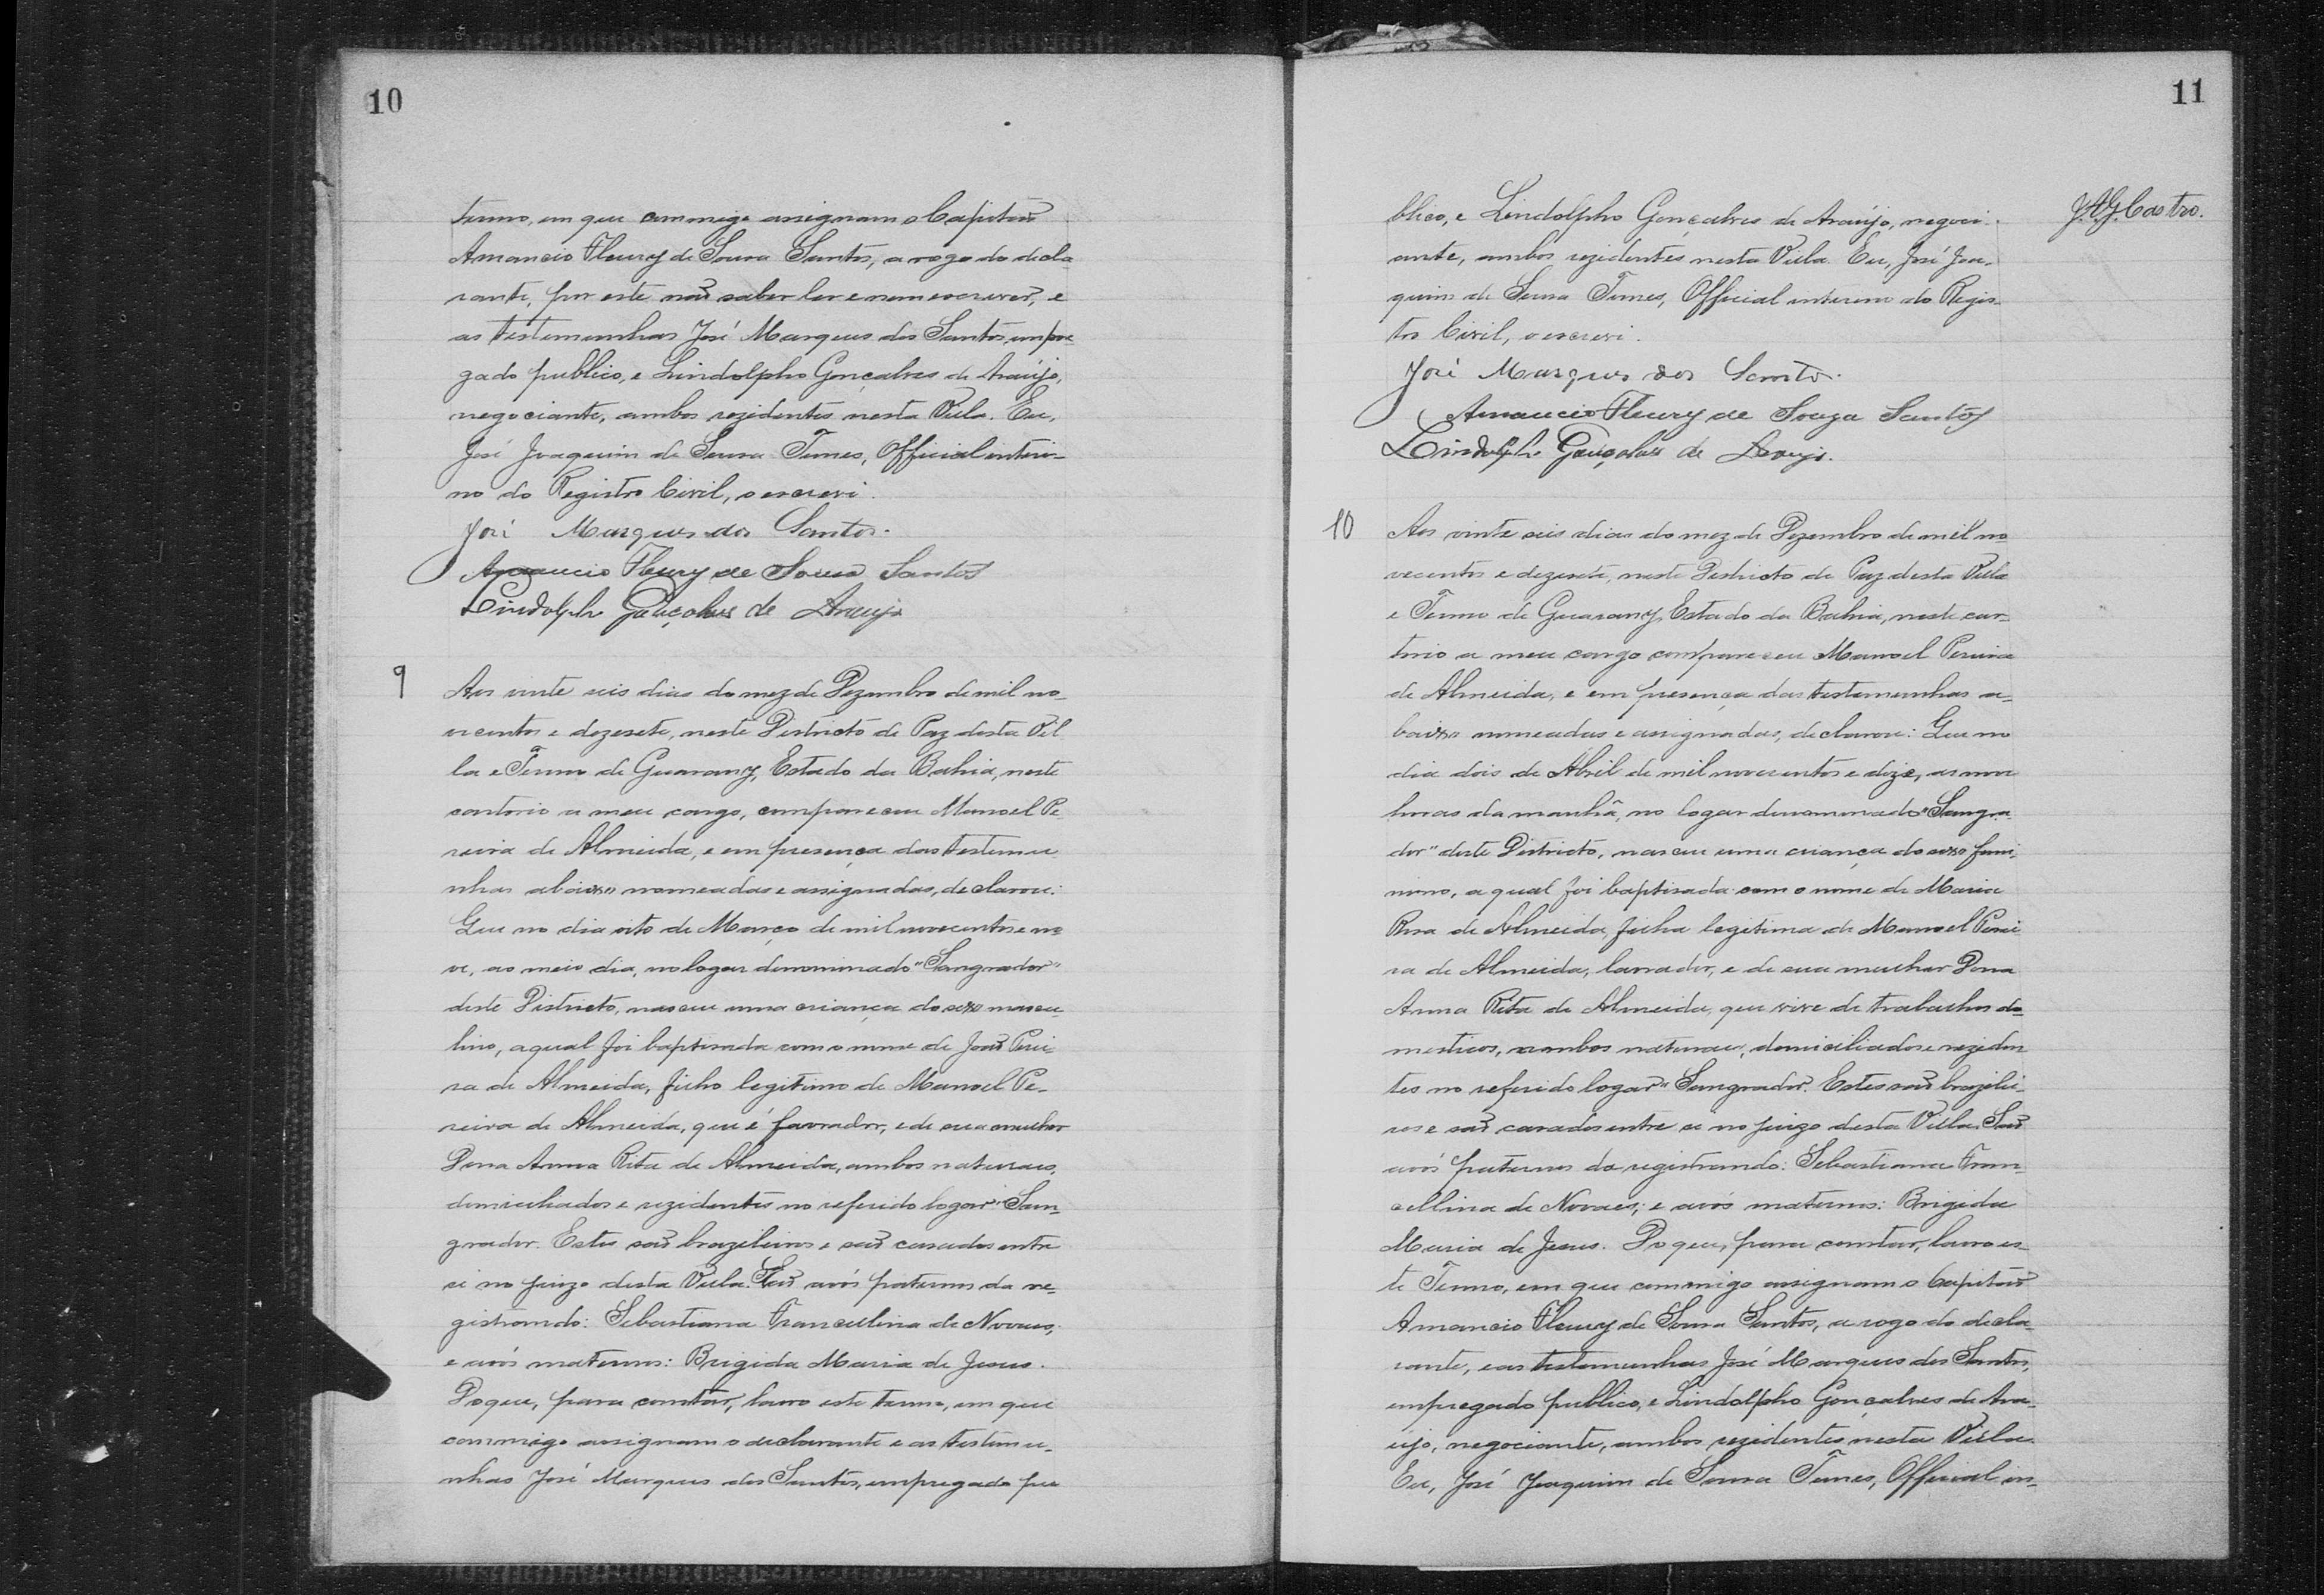 10
termo, em que commigo assignam o Capitão
Amancio Fleury de Sousa Santos, a rogo do decla-
rante, por este não saber ler e nem escrever, e
as testemunhas José Marques dos Santos, empre-
gado publico, e Lindolpho Gonçalves de Araújo,
negociante, ambos rezidentes nesta Villa. Eu,
José Joaquim de Sousa Tunes, Official interi-
no do Registro Civil, o escrevi.
José Marques dos Santos.
Amancio Fleury de Sousa Santos
Lindolpho Gonçalves de Araujo
9
Aos vinte seis dias do mez de Dezembro de mil no-
vecentos e dezesete, neste Districto de Paz desta Vil
la e Termo de Guarany, Estado da Bahia, neste
cartorio a meu cargo, compareceu Manoel Pe-
reira de Almeida, e em presença das testemu-
nhas abaixo nomeadas e assignadas, declarou:
Que no dia oito de Março de mil novecentos e no-
ve, ao meio dia, no logar denominado "Sangrador"
deste Districto, nasceu uma criança do sexo mascu-
lino, a qual foi baptisada com o nome de João Perei-
ra de Almeida, filho legitimo de Manoel Pe-
reira de Almeida, que é lavrador, e de sua mulher
Dona Anna Rita de Almeida, ambos naturaes,
domiciliados e rezidentes no referido logar "San-
grador. Estes são brazileiros e são casados entre
si no juizo desta Villa. São avós paternos do re-
gistrando: Sebastiana Francellina de Novaes;
e avós maternos: Brigida Maria de Jesus.
Do que, para constar, lavro este termo, em que
commigo assignam o declarante e as testemu-
nhas José Marques dos Santos, empregado pu
11
J.A.G. Castro.
blico, e Lindolpho Gonçalves de Araújo, negoci-
ante, ambos rezidentes nesta Villa. Eu, José Joa-
quim de Sousa Tunes, Official interino do Regis-
tro Civil, o escrevi.
José Marques dos Santos.
Amancio Fleury de Souza Santos
Lindolpho Gonçalves de Araujo.
10
Aos vinte seis dias do mez de Dezembro de mil no-
vecentos e dezesete, neste Districto de Paz desta Villa
e Termo de Guarany, Estado da Bahia, neste car-
torio a meu cargo compareceu Manoel Pereira
de Almeida, e em presença das testemunhas a-
baixo nomeadas e assignadas, declarou: Que no
dia dois de Abril de mil novecentos e doze, as nove
horas da manhã, no logar denominado "Sangra-
dor" deste Districto, nasceu uma criança do sexo femi-
nino, a qual foi baptisada com o nome de Maria
Rosa de Almeida, filha legitima de Manoel Perei
ra de Almeida, lavrador, e de sua mulher Dona
Anna Rita de Almeida, que vive de trabalhos do-
mesticos, ambos naturaes, domiciliados e reziden
tes no referido logar "Sangrador. Estes são brazilei-
ros e são casados entre si no juizo desta Villa. São
avós paternos do registrando: Sebastiana Fran-
cellina de Novaes; e avós maternos: Brigida
Maria de Jesus. Do que, para constar, lavro es-
te Termo, em que commigo assignam o Capitão
Amancio Fleury de Sousa Santos, a rogo do decla-
rante, e as testemunhas José Marques dos Santos,
empregado publico, e Lindolpho Gonçalves de Ara-
újo, negociante, ambos rezidentes nesta Villa.
Eu, José Joaquim de Sousa Tunes, Official in-